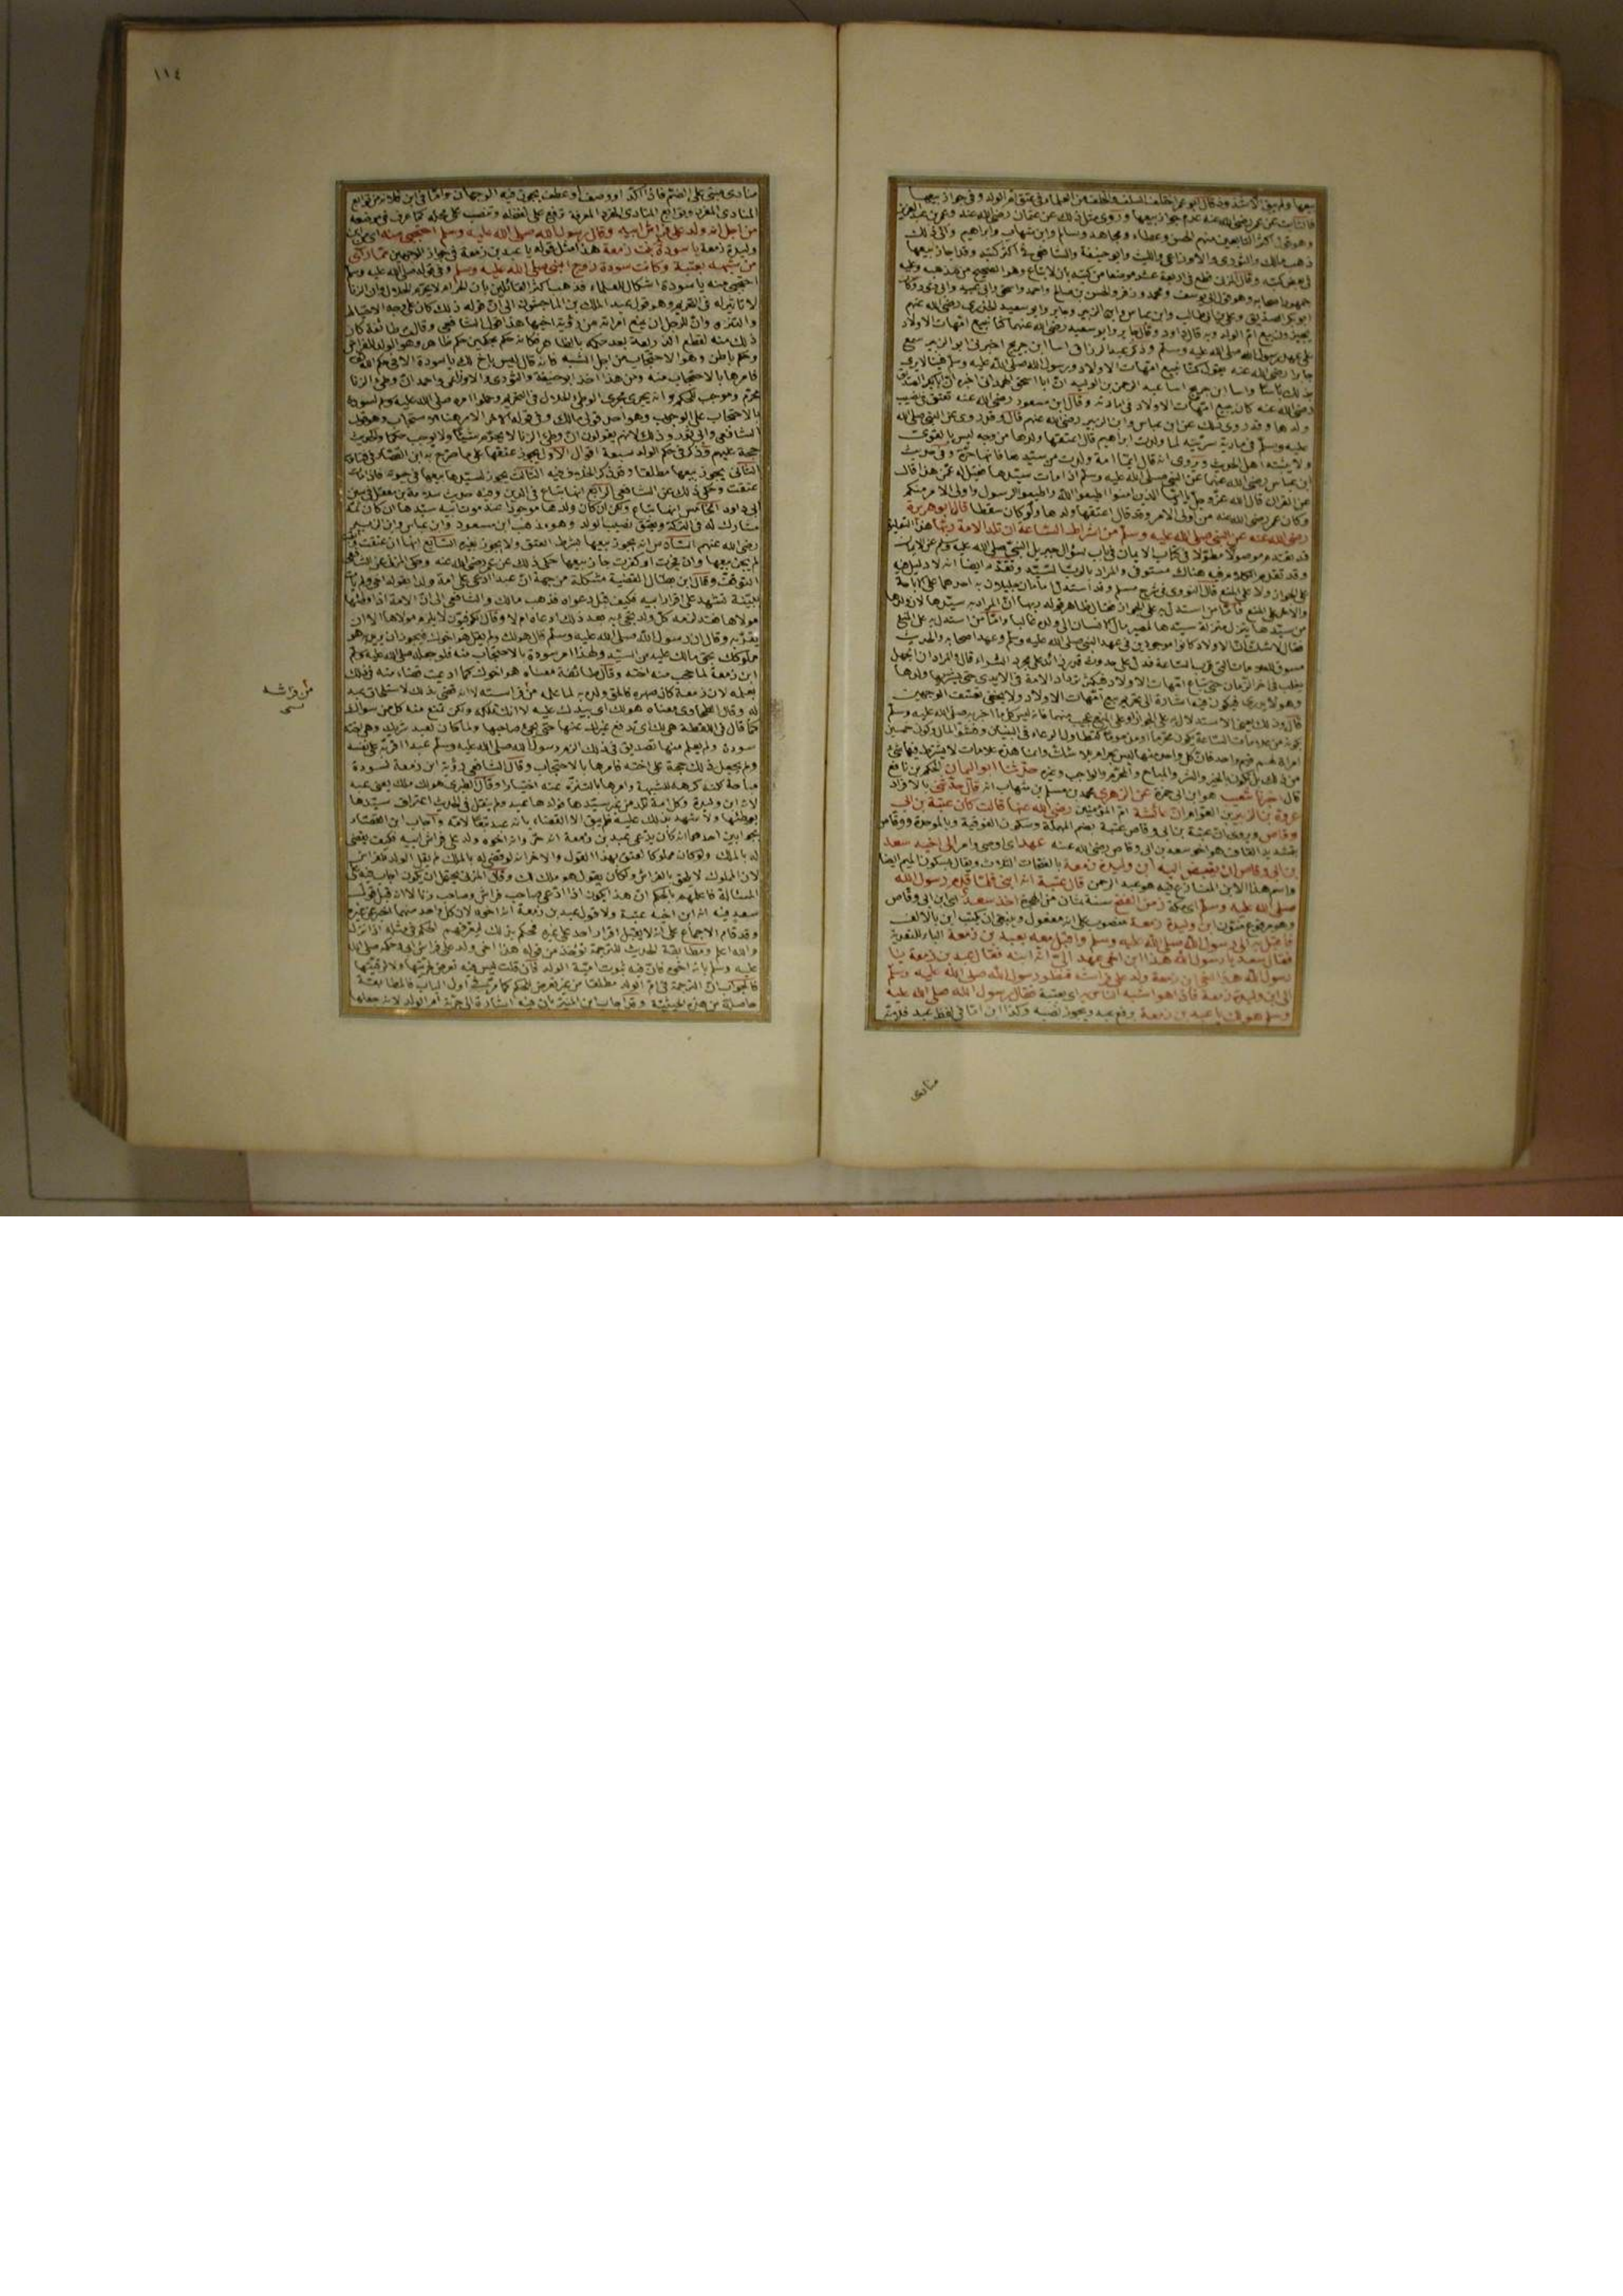 بيعها ولم يبق الا شذوذ قال ابو عمر اختلف السلف والخلف من العلماء في عتق ام الولد وفي جواز بيعها
فالثابت عن عمر رضي الله عنه عدم جواز بيعها وروى مثل ذلك عن عثمان رضي الله عنه وعمر بن عبد العزيز
وهو قول اكثر التابعين منهم الحسن وعطاء ومجاهد وسالم وابن شهاب وابراهيم والى ذلك
ذهب مالك والثوري والاوزاعي والليث وابو حنيفة والشافعي في اكثر كتبه وقد اجاز بيعها
في بعض كتبه وقال المزني قطع في اربعة عشر موضعا من كتبه بان لا تباع وهو الصحيح من مذهبه وعليه
جمهور اصحابه وهو قول ابي يوسف ومحمد وزفر والحسن بن صالح واحمد واسحق وابي عبيد وابي ثور وكان
ابو بكر الصديق وعلي بن ابي طالب وابن عباس وابن الزبير وجابر وابو سعيد الخدري رضي الله عنهم
يجيزون بيع ام الولد وبه قال داود وقال جابر وابو سعيد رضي الله عنهما كنا نبيع امهات الاولاد
على عهد رسول الله صلى الله عليه وسلم وذكر عبد الرزاق انبا ابن جريج اخبرني ابو الزبير سمع
جابرا رضي الله عنه يقول كنا نبيع امهات الاولاد ورسول الله صلى الله عليه وسلم فينا لا يرى
بذلك باسا وانبا ابن جريج انبا عبد الرحمن بن الوليد ان ابا اسحق الهمداني اخبره ان ابا بكر الصديق
رضي الله عنه كان يبيع امهات الاولاد في امارته وقال ابن مسعود رضي الله عنه تعتق في نصيب
ولدها وقد روى ذلك عن ابن عباس وابن الزبير رضي الله عنهم قال وقد روى عن النبي صلى الله
عليه وسلم في مارية سريته لما ولدت ابراهيم قال اعتقها ولدها من وجه ليس بالقوي
ولا يثبته اهل الحديث ويروى انه قال ايما امة ولدت من سيدها فانها حرة وفي حديث
ابن عباس رضي الله عنهما عن النبي صلى الله عليه وسلم اذا مات سيدها فقيل له عمن هذا قال
عن القرآن قال الله عز وجل يا ايها الذين امنوا اطيعوا الله واطيعوا الرسول واولي الامر منكم
وكان عمر رضي الله عنه من اولي الامر وقد قال اعتقها ولدها ولو كان سقطا قال ابو هريرة
رضي الله عنه عن النبي صلى الله عليه وسلم من اشراط الساعة ان تلد الامة ربها هذا التعليق
قد تقدم موصولا مطولا في كتاب الايمان في باب سؤال جبريل النبي صلى الله عليه وسلم عن الايمان
وقد تقدم الكلام فيه هناك مستوفى والمراد بالرب السيد وتقدم ايضا انه لا دليل فيه
على الجواز ولا على المنع قال النووي في شرح مسلم وقد استدل امامان جليلان به احدهما على الاباحة
والاخر على المنع فاما من استدل به على الجواز فقال ظاهر قوله ربها ان المراد به سيدها لان ولدها
من سيدها يتنزل منزلة سيدها لمصير مال الانسان الى ولده غالبا واما من استدل به على المنع
فقال لا شك ان الاولاد كانوا موجودين في عهد النبي صلى الله عليه وسلم وعهد اصحابه والحديث
مسوق للعلامات التي قرب الساعة فدل على حدوث قدر زائد على مجرد التسري قال والمراد ان الجهل
يغلب في اخر الزمان حتى تباع امهات الاولاد فيكثر ترداد الامة في الايدي حتى يشتريها ولدها
وهو لا يدري فيكون فيه اشارة الى تحريم بيع امهات الاولاد ولا يخفى تعسف الوجهين
قال وذلك يعني الاستدلال به على الجواز او على المنع عجيب منهما فانه ليس كل ما اخبر به صلى الله عليه وسلم
بكونه من علامات الساعة يكون محرما او مذموما كتطاول الرعاء في البنيان وفشو المال وكون خمسين
امراة لهم قيم واحد فان كل واحد منها ليس بحرام بلا شك وانما هذه علامات لا يشترط فيها شيء
من ذلك بل يكون بالخير والشر والمباح والمحرم والواجب وغيره حدثنا ابو اليمان الحكم بن نافع
قال اخبرنا شعيب هو ابن ابي حمزة عن الزهري محمد بن مسلم بن شهاب انه قال حدثني بالافراد
عروة بن الزبير بن العوام ان عائشة ام المؤمنين رضي الله عنها قالت كان عتبة بن ابي
وقاص ويروى ان عتبة بن ابي وقاص عتبة بضم المهملة وسكون الفوقية وبالموحدة ووقاص
بتشديد القاف هو اخو سعد بن ابي وقاص رضي الله عنه عهد اي اوصى وامر الى اخيه سعد
بن ابي وقاص ان يقبض اليه ابن وليدة زمعة بالفتحات الثلاث ويقال بسكون الميم ايضا
واسم هذا الابن المتنازع فيه هو عبد الرحمن قال عتبة انه ابني فلما قدم رسول الله
صلى الله عليه وسلم اي مكة زمن الفتح سنة ثمان من الهجرة اخذ سعد اي ابن ابي وقاص
وهو مرفوع منون ابن وليدة زمعة منصوب على انه مفعول وينبغي ان يكتب ابن بالالف
فاقبل به الى رسول الله صلى الله عليه وسلم واقبل معه بعبد بن زمعة الباء للتعدية
فقال سعد يا رسول الله هذا ابن اخي عهد الي انه ابنه فقال عبد بن زمعة يا
رسول الله هذا اخي ابن زمعة ولد على فراشه فنظر رسول الله صلى الله عليه وسلم
الى ابن وليدة زمعة فاذا هو اشبه الناس به اي بعتبة فقال رسول الله صلى الله عليه
وسلم هو لك يا عبد بن زمعة برفع عبد ويجوز نصبه وكذا ابن اما في لفظ عبد فلانه
منادى
١١٤
منادى مبني على الضم فاذا اكد او وصف او عطف يجوز فيه الوجهان واما في ابن فلانه من توابع
المنادى المفرد وتوابع المنادى المفرد المعرفة ترفع على لفظه وتنصب على محله كما عرف في موضعه
من اجل انه ولد على فراش ابيه وقال رسول الله صلى الله عليه وسلم احتجبي منه اي من ابن
وليدة زمعة يا سودة بنت زمعة هذا مثل قوله يا عبد بن زمعة في جواز الوجهين مما راى
من شبهه بعتبة وكانت سودة زوج النبي صلى الله عليه وسلم وفي قوله صلى الله عليه وسلم
احتجبي منه يا سودة اشكال للعلماء فذهب اكثر القائلين بان الحرام لا يحرم الحلال وان الزنا
لا تاثير له في التحريم وهو قول عبد الملك بن الماجشون الى ان قوله ذلك كان على وجه الاحتياط
والتنزه وان للرجل ان يمنع امراته من رؤية اخيها هذا قول الشافعي وقالت طائفة كان
ذلك منه لقطع الذريعة بعد حكمه بالظاهر فكانه حكم بحكمين حكم ظاهر وهو الولد للفراش
وحكم باطن وهو الاحتجاب من اجل الشبه فانه قال ليس باخ لك يا سودة الا في حكم الله
فامرها بالاحتجاب منه ومن هذا اخذ ابو حنيفة والثوري والاوزاعي واحمد ان وطئ الزنا
محرم وموجب للحكم وانه يجري مجرى الوطئ الحلال في التحريم وحملوا امره صلى الله عليه وسلم لسودة
بالاحتجاب على الوجوب وهو احد قولي مالك وفي قوله الاخر الامر هنا للاستحباب وهو قول
الشافعي وابي ثور وذلك لانهم يقولون ان وطئ الزنا لا يحرم شيئا ولا يوجب حكما والحديث
حجة عليهم وذكر في حكم الولد سبعة اقوال الاول يجوز عتقها على ما صرح به ابن القصار في فتاويه
الثاني يجوز بيعها مطلقا وقد ذكر الخلاف فيه الثالث يجوز لسيدها بيعها في حيوته فاذا مات
عتقت وحكي ذلك عن الشافعي الرابع انها تباع في الدين وفيه حديث سلامة بن معقل في سنن
ابي داود الخامس انها تباع ولكن ان كان ولدها موجودا عند موت ابيه سيدها ان كان ثمة
مشارك له في التركة ويعتق نصيب الولد وهو مذهب ابن مسعود وابن عباس وابن الزبير
رضي الله عنهم السادس انه يجوز بيعها بشرط العتق ولا يجوز بغيره السابع انها ان عتقت
لم يجز بيعها وان فجرت او كفرت جاز بيعها حكي ذلك عن عمر رضي الله عنه وحكى المزني عن الشافعي
التوقف وقال ابن بطال القضية مشكلة من جهة ان عبدا ادعى على امة ولدا بقوله اخي ولم يات
ببينة تشهد على اقرار ابيه فكيف قبل دعواه فذهب مالك والشافعي الى ان الامة اذا وطئها
مولاها فقد لزمه كل ولد تجيء به بعد ذلك ادعاه ام لا وقال الكوفيون لا يلزم مولاها الا ان
يقر به وقال ان رسول الله صلى الله عليه وسلم قال هو لك ولم يقل هو اخوك فيجوز ان يريد هو
مملوكك بحق مالك عليه من السيد ولهذا امر سودة بالاحتجاب منه فلو جعله صلى الله عليه وسلم
ابن زمعة لما حجب منه اخته وقال طائفة معناه هو اخوك كما ادعيت قضاء منه في ذلك
بعلمه لان زمعة كان صهره فالحق ولده به لما علمه من فراسته لا انه قضى بذلك لاستلحاق عبد
له وقال الطحاوي معناه هو لك اي بيدك عليه لا انك تملكه ولكن تمنع منه كل من سواك
كما قال في اللقطة هي لك اي تدفع غيرك عنها حتى يجيء صاحبها ولما كان لعبد شريك وهي اخته
سودة ولم يعلم منها تصديق في ذلك الزم رسول الله صلى الله عليه وسلم عبدا اقر به على نفسه
ولم يجعل ذلك حجة على اخته فامرها بالاحتجاب وقال الشافعي رؤية ابن زمعة لسودة
مباحة لكنه كرهه للشبهة وامرها بالتنزه عنه اختيارا وقال الطبري هو لك ملك يعني عبد
لانه ابن وليدة وكل امة تلد من غير سيدها فولدها عبد ولم ينقل في الحديث اعتراف سيدها
بوطئها ولا شهد بذلك عليه فلم يبق الا القضاء بانه عبد تبعا لامه واجاب ابن القصار
بجوابين احدهما انه كان يدعي عبد بن زمعة انه حر وانه اخوه ولد على فراش ابيه فكيف يقضي
له بالملك ولو كان مملوكا لعتق بهذا القول والاخر انه لو قضى له بالملك لم يقل الولد للفراش
لان المملوك لا يلحق بالفراش ولكان يقول هو ملك لك وقال المزني يحتمل ان يكون اجاب فيه على
المسئالة فاعلمهم بالحكم ان هذا يكون اذا ادعى صاحب فراش وصاحب زنا لا انه قبل قول
سعد فيه انه ابن اخيه عتبة ولا قول عبد بن زمعة انه اخوه لان كل واحد منهما اخبر عن غيره
وقد قام الاجماع على انه لا يقبل اقرار احد على غيره فحكم بذلك ليعرفهم الحكم في مثله اذا نزل
والله اعلم ومطابقة الحديث للترجمة تؤخذ من قوله هذا اخي ولد على فراش ابي وحكمه صلى الله
عليه وسلم بانه اخوه فان فيه ثبوت امية الولد فان قلت ليس فيه تعرض لحريتها ولا لرقيتها
فالجواب ان الترجمة في ام الولد مطلقا من غير تعرض للحكم كما مر في اول الباب فالمطابقة
حاصلة من هذه الحيثية وقد اجاب ابن المنير بان فيه اشارة الى حرية ام الولد لانه جعلها
من فراشه